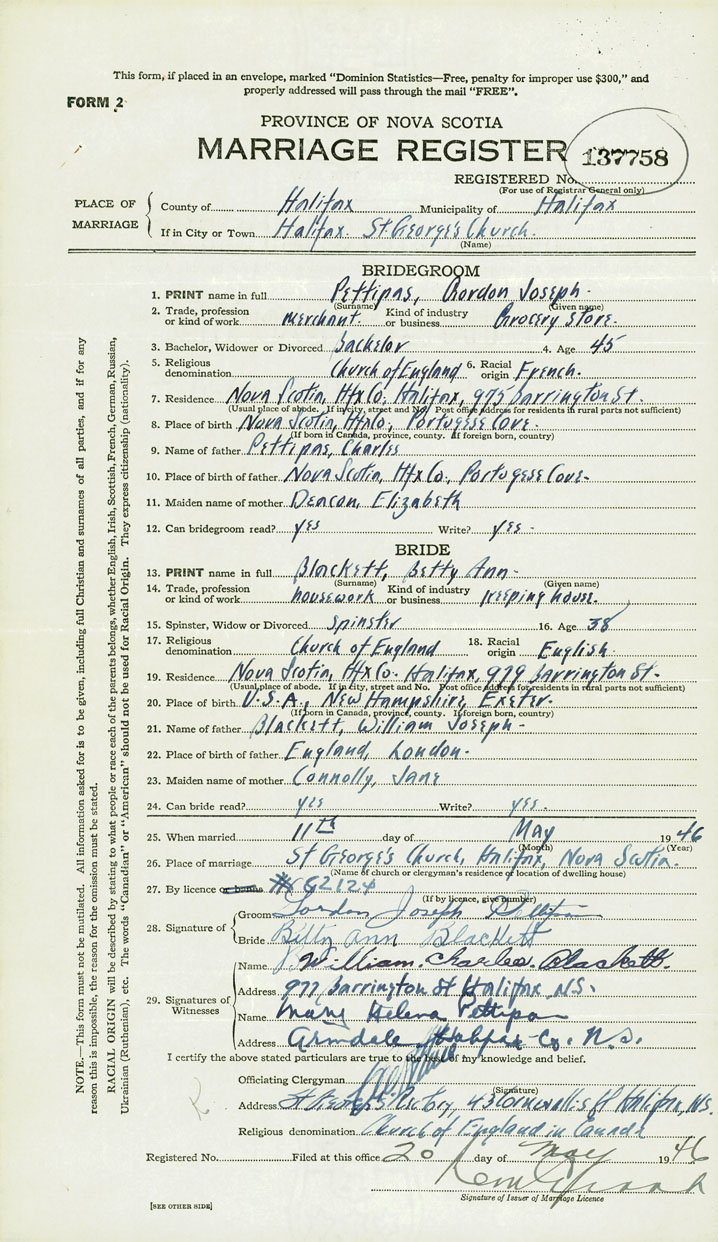 This form, if placed in an envelope, marked "Dominion Statistics—Free, penalty for improper use $300," and
properly addressed will pass through the mail "FREE".
FORM 2
PROVINCE OF NOVA SCOTIA
MARRIAGE REGISTER
137758
REGISTERED No.
(For use of Registrar General only)
PLACE OF MARRIAGE
County of Halifax Municipality of Halifax
If in City or Town Halifax. St George's Church.
(Name)
BRIDEGROOM
1. PRINT name in full Pettipas, Gordon Joseph.
(Surname) (Given name)
2. Trade, profession or kind of work merchant. Kind of industry or business Grocery Store.
3. Bachelor, Widower or Divorced Bachelor 4. Age 45
5. Religious denomination Church of England 6. Racial origin French.
7. Residence Nova Scotia, Hfx Co. Halifax, 975 Barrington St.
(Usual place of abode. If in city, street and No. Post office address for residents in rural parts not sufficient)
8. Place of birth Nova Scotia, Hfx Co., Portugese Cove.
(If born in Canada, province, county. If foreign born, country)
9. Name of father Pettipas, Charles
10. Place of birth of father Nova Scotia, Hfx Co., Portugese Cove.
11. Maiden name of mother Deacon, Elizabeth
12. Can bridegroom read? yes Write? yes.
BRIDE
13. PRINT name in full Blackett, Betty Ann.
(Surname) (Given name)
14. Trade, profession or kind of work housework Kind of industry or business keeping house.
15. Spinster, Widow or Divorced Spinster 16. Age 38
17. Religious denomination Church of England 18. Racial origin English.
19. Residence Nova Scotia, Hfx Co. Halifax, 979 Barrington St.
(Usual place of abode. If in city, street and No. Post office address for residents in rural parts not sufficient)
20. Place of birth U.S.A., New Hampshire, Exeter.
(If born in Canada, province, county. If foreign born, country)
21. Name of father Blackett, William Joseph.
22. Place of birth of father England, London.
23. Maiden name of mother Connolly, Jane
24. Can bride read? yes Write? yes.
25. When married 11th day of May 1946
(Month) (Year)
26. Place of marriage St George's Church, Halifax, Nova Scotia.
(Name of church or clergyman's residence or location of dwelling house)
27. By licence or banns # G2124
(If by licence, give number)
28. Signature of
Groom Gordon Joseph Pettipas
Bride Betty Ann Blackett
29. Signatures of Witnesses
Name William Charles Blackett.
Address 977 Barrington St Halifax, N.S.
Name Mary Helena Pettipas
Address Armdale, Halifax Co. N.S.
I certify the above stated particulars are true to the best of my knowledge and belief.
Officiating Clergyman
(Signature)
Address St George's Rectory, 43 Cornwallis St Halifax, N.S.
Religious denomination Church of England in Canada
Registered No. Filed at this office 20 day of May 1946
Signature of Issuer of Marriage Licence
[SEE OTHER SIDE]
NOTE.—This form must not be mutilated. All information asked for is to be given, including full Christian and surnames of all parties, and if for any
reason this is impossible, the reason for the omission must be stated.
RACIAL ORIGIN will be described by stating to what people or race each of the parents belongs, whether English, Irish, Scottish, French, German, Russian,
Ukrainian (Ruthenian), etc. The words "Canadian" or "American" should not be used for Racial Origin. They express citizenship (nationality).